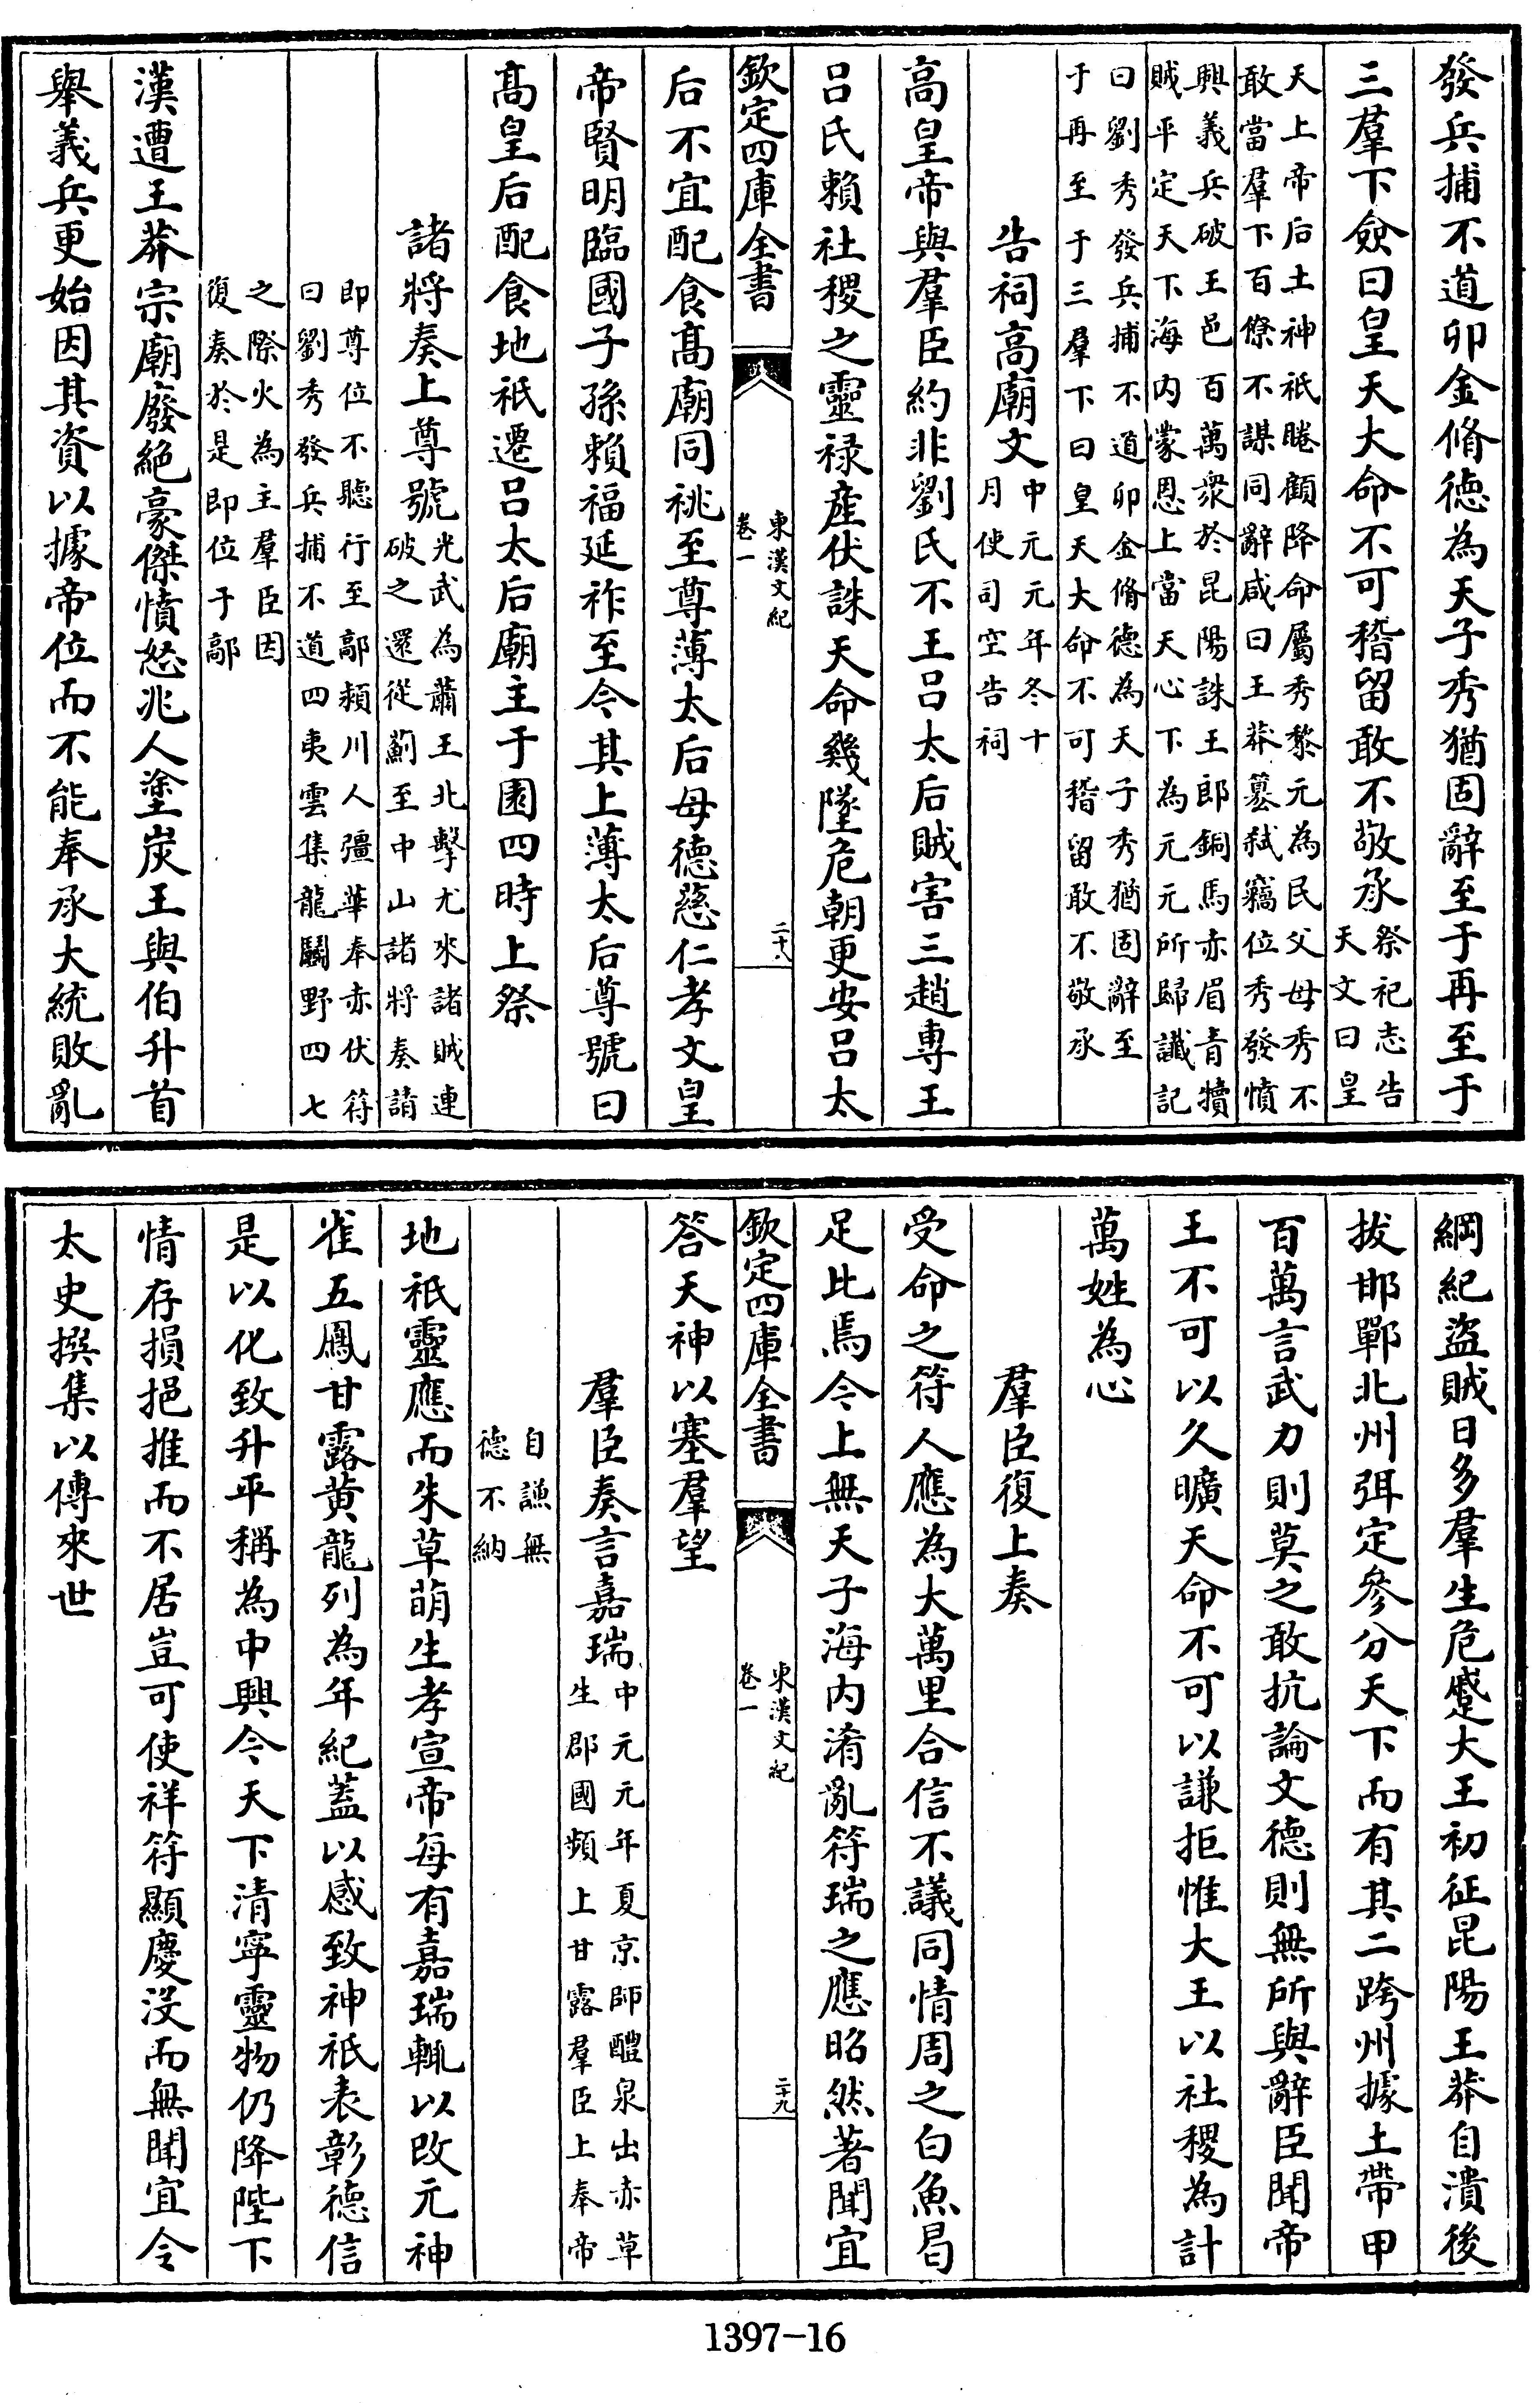 發兵捕不道卯金脩徳為天子秀猶固辭至于再至于
三羣下僉曰皇天大命不可稽留敢不敬承祭祀志告天文曰皇
天上帝后土神祇睠顧降命屬秀黎元為民父母秀不
敢當羣下百僚不謀同辭咸曰王莽簒弑竊位秀發憤
興義兵破王邑百萬衆於昆陽誅王郎銅馬赤眉青犢
賊平定天下海内蒙恩上當天心下為元元所歸讖記
曰劉秀發兵捕不道卯金脩德為天子秀猶固辭至
于再至于三羣下曰皇天大命不可稽留敢不敬承
告祠高廟文中元元年冬十月使司空告祠
高皇帝與羣臣約非劉氏不王吕太后賊害三趙専王
吕氏賴社稷之靈禄産伏誅天命幾墜危朝更安吕太
欽定四庫全書
東漢文紀
卷一
二十八
后不宜配食髙廟同祧至尊薄太后母德慈仁孝文皇
帝賢明臨國子孫賴福延祚至今其上薄太后尊號曰
髙皇后配食地祇遷吕太后廟主于園四時上祭
諸將奏上尊號光武為蕭王北擊尤來諸賊連破之還從薊至中山諸將奏請
即尊位不聽行至鄗潁川人彊華奉赤伏符
曰劉秀發兵捕不道四夷雲集龍鬬野四七
之際火為主羣臣因
復奏於是即位于鄗
漢遭王莽宗廟廢絶豪傑憤怒兆人塗炭王與伯升首
舉義兵更始因其資以據帝位而不能奉承大統敗亂
綱紀盜賊日多羣生危蹙大王初征昆陽王莽自潰後
拔邯鄲北州弭定參分天下而有其二跨州據土帶甲
百萬言武力則莫之敢抗論文德則無所與辭臣聞帝
王不可以久曠天命不可以謙拒惟大王以社稷為計
萬姓為心
羣臣復上奏
受命之符人應為大萬里合信不議同情周之白魚曷
足比焉今上無天子海内淆亂符瑞之應昭然著聞宜
欽定四庫全書
東漢文紀
卷一
二十九
答天神以塞羣望
羣臣奏言嘉瑞中元元年夏京師醴泉出赤草生郡國頻上甘露羣臣上奉帝
自謙無
德不納
地祇靈應而朱草萌生孝宣帝每有嘉瑞輒以改元神
雀五鳳甘露黄龍列為年紀蓋以感致神祇表彰德信
是以化致升平稱為中興今天下清寜靈物仍降陛下
情存損挹推而不居豈可使祥符顯慶没而無聞宜令
太史撰集以傳來世
1397-16